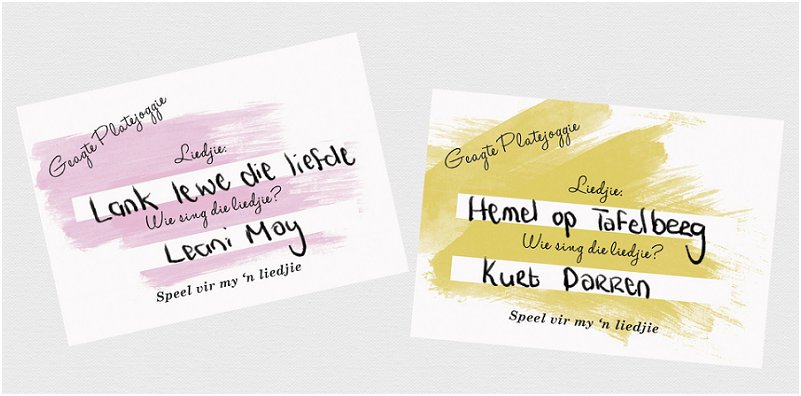 Geagte Platejoggie
Liedjie:
Lank lewe die liefde
Wie sing die liedjie?
Leani May
Speel vir my 'n liedjie
Geagte Platejoggie
Liedjie:
Hemel op Tafelberg
Wie sing die liedjie?
Kurt Darren
Speel vir my 'n liedjie